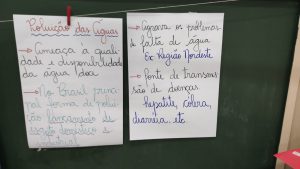 Poluição das Águas
→ Ameaça à quali
dade e disponibilidade
da água doce
→ No Brasil princi
pal forma de polui
ção lançamento de
esgoto doméstico e
industrial
→ Agrava os problemas
de falta de água
Ex: Região Nordeste
→ Fonte de transmis
são de doenças
hepatite, cólera,
diarreia, etc.